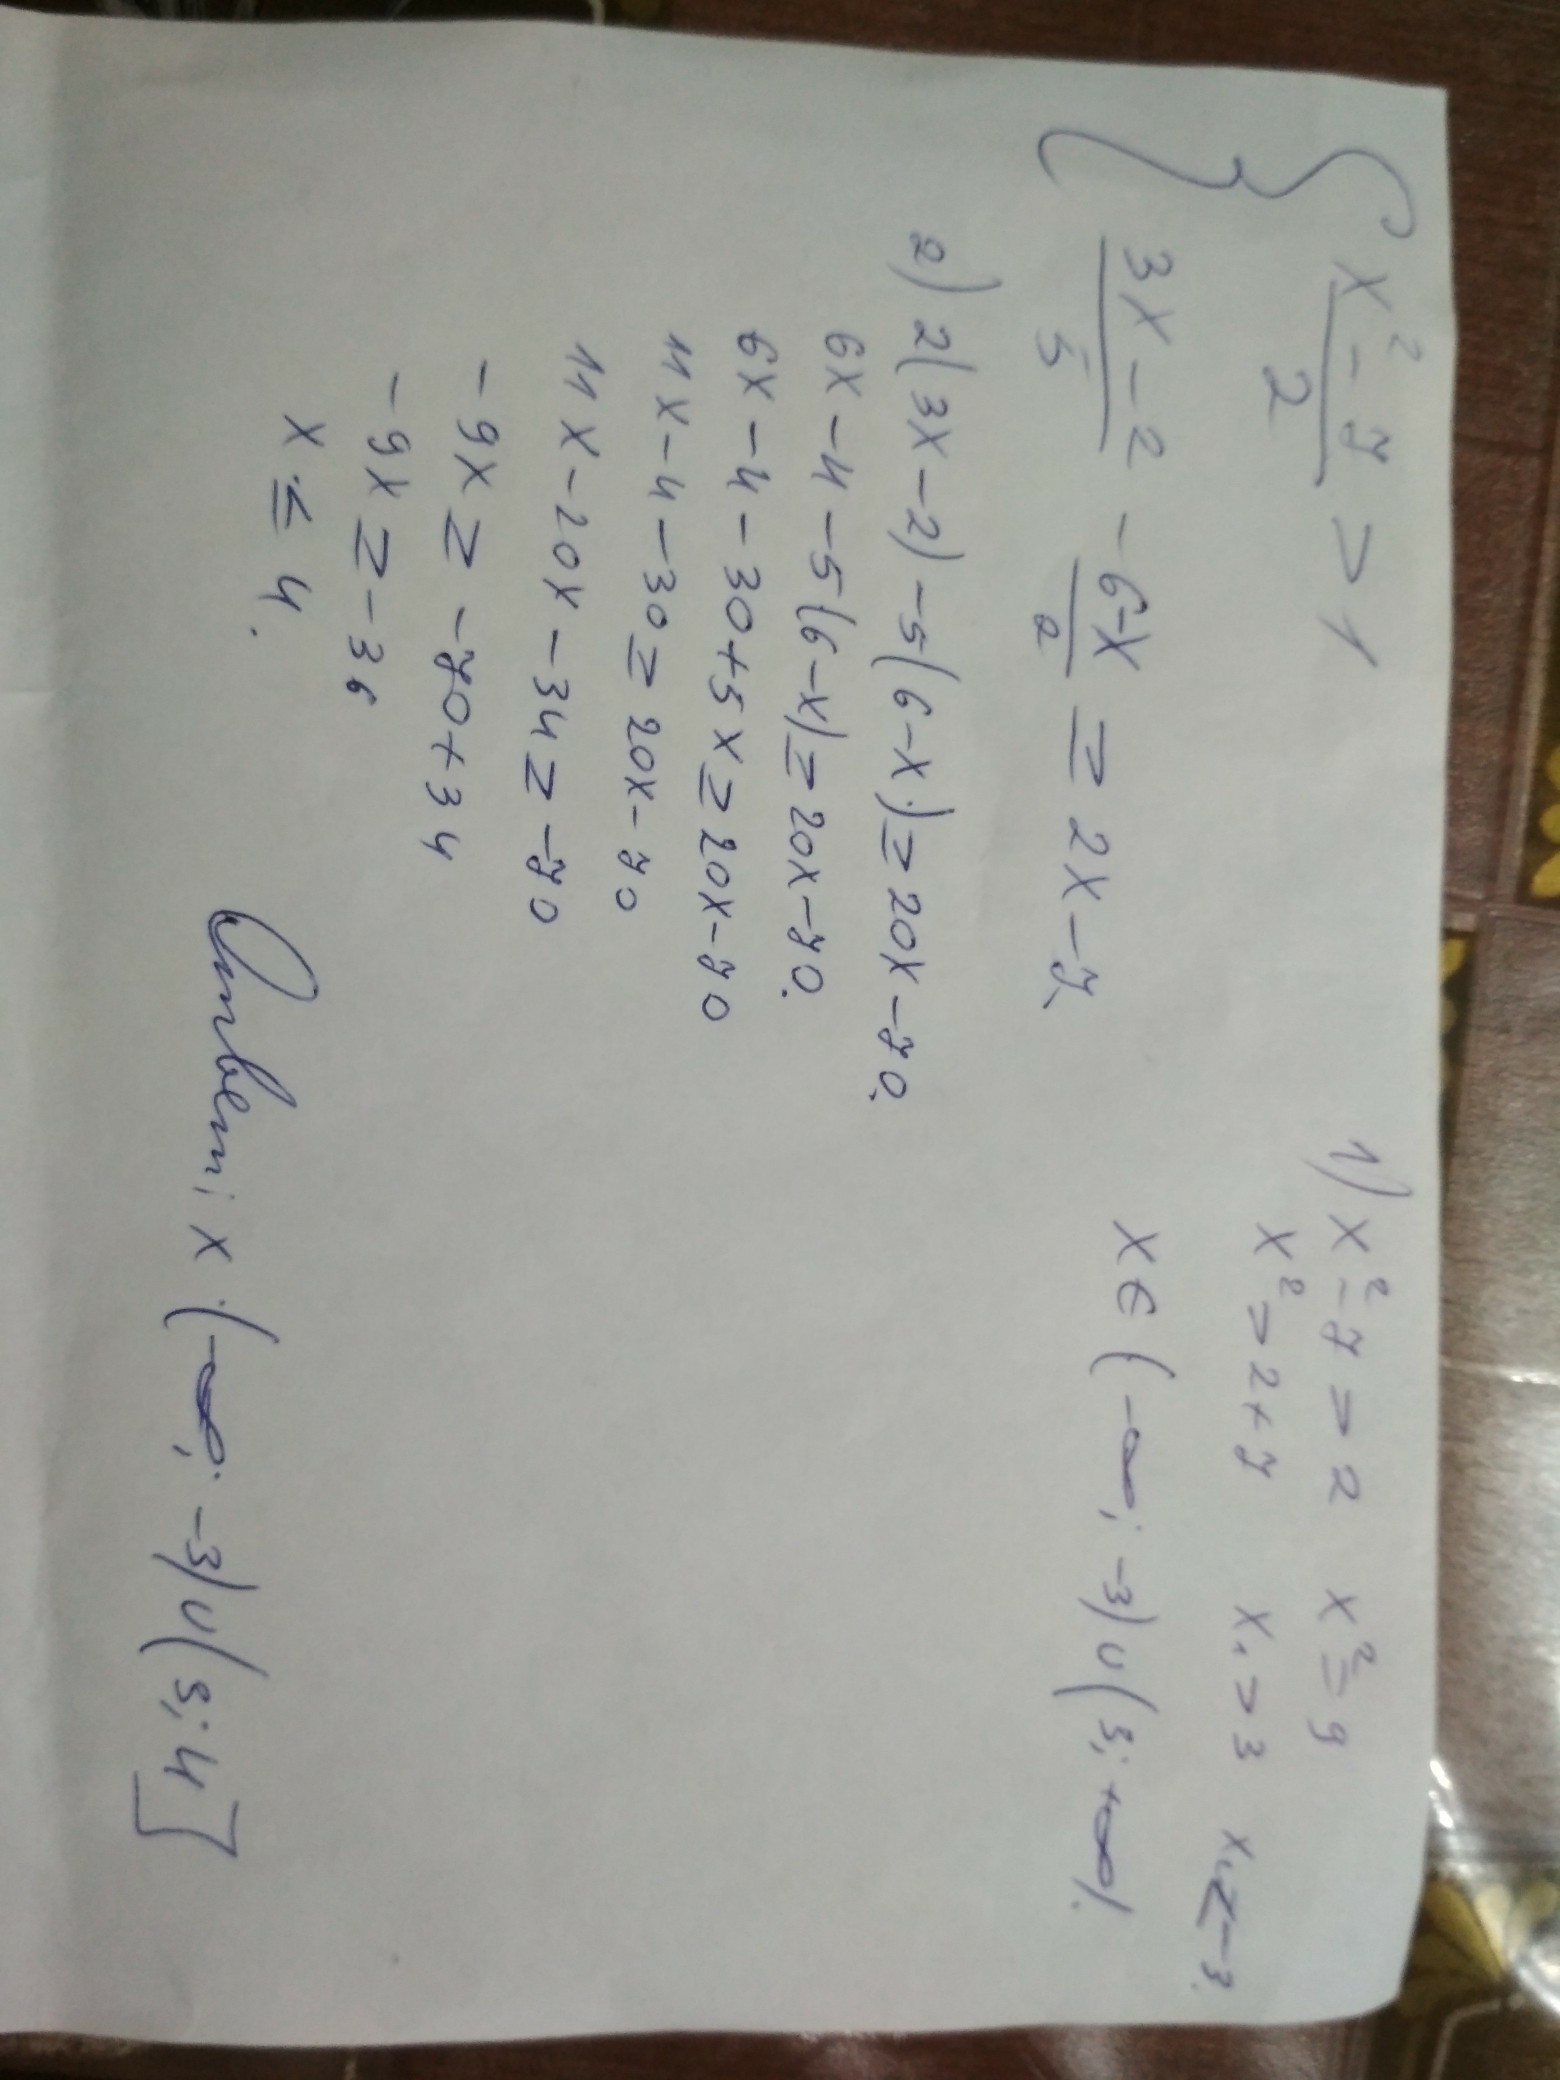 { x² - 7 / 2 > 1
3x - 2 / 5 - 6-x / 2 ≥ 2x - 7
1) x² - 7 > 2 x² = 9
x² > 2 + 7 x₁ > 3 x₂ < -3
x ∈ (-∞; -3) ∪ (3; +∞).
2) 2(3x - 2) - 5(6 - x) ≥ 20x - 70.
6x - 4 - 5(6 - x) ≥ 20x - 70.
6x - 4 - 30 + 5x ≥ 20x - 70
11x - 4 - 30 ≥ 20x - 70
11x - 20x - 34 ≥ -70
-9x ≥ -70 + 34
-9x ≥ -36
x ≤ 4.
Ответ: x (-∞; -3) ∪ (3; 4]